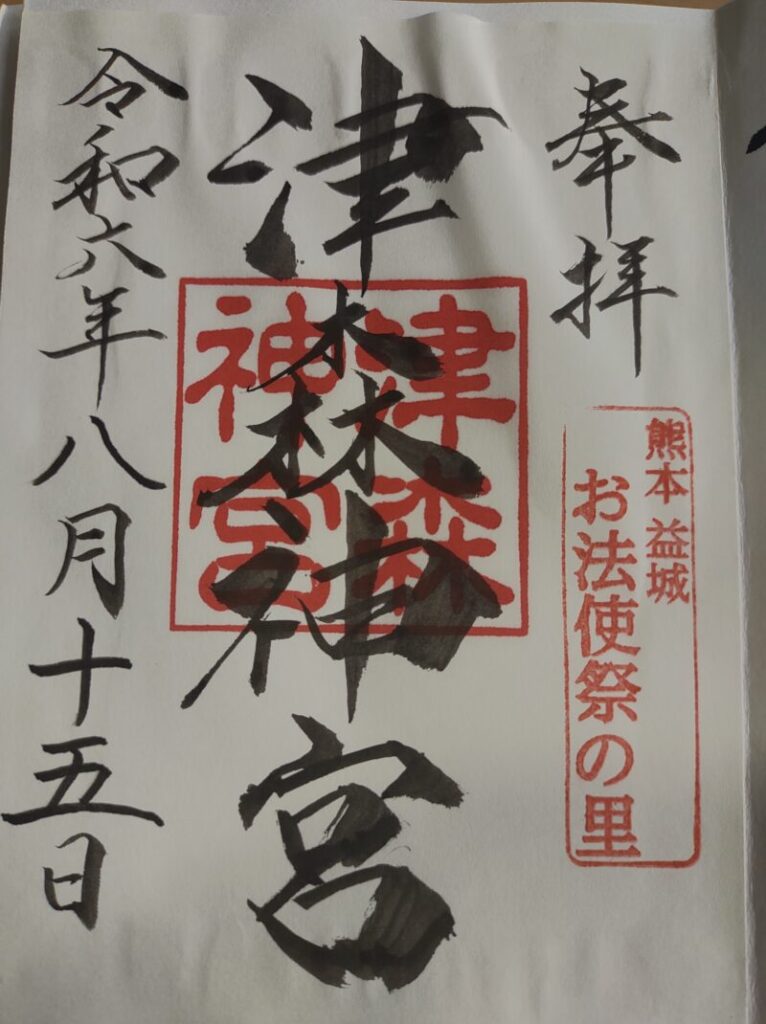 奉拝
熊本 益城
お法使祭の里
津森神宮
津森
神宮
令和六年八月十五日